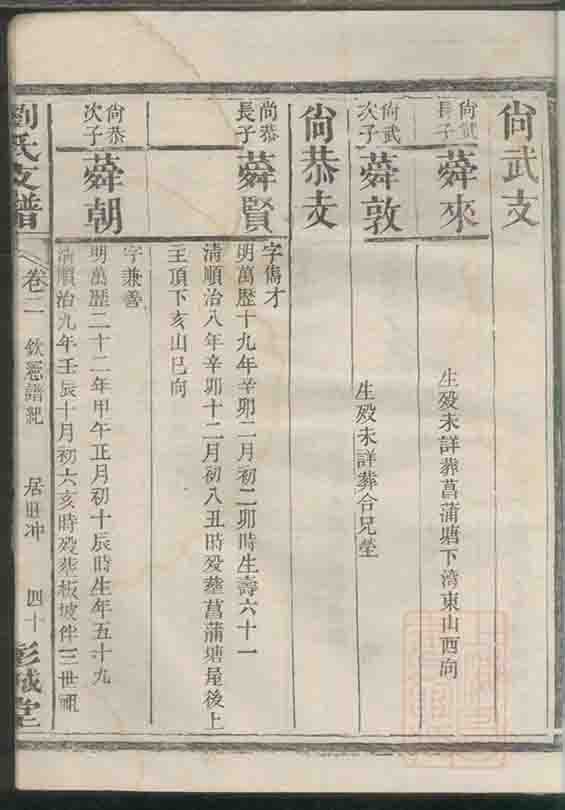 尙武支
尙武
長子
蕣來
生殁未詳葬菖蒲塘下湾東山西向
尙武
次子
蕣敦
生殁未詳葬合兄塋
尙恭支
尙恭
長子
蕣賢
字儁才
明萬歷十九年辛卯二月初二卯時生壽六十一
清順治八年辛卯十二月初八丑時殁塟菖蒲塘屋後上
王頂下亥山巳向
尙恭
次子
蕣朝
字兼善
明萬歷二十二年甲午正月初十辰時生年五十九
清順治九年壬辰十月初六亥時殁塟板坡伴三世祖
劉氏支譜
卷二
欽憲譜紀
居旺冲
四十
彭城堂